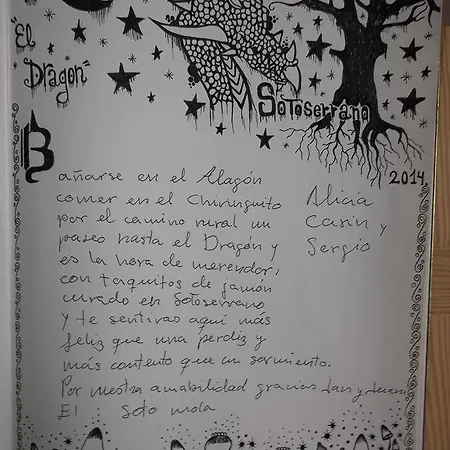 "El
Dragon"
Sotoserrano
2014
Bañarse en el Alagón
comer en el Chiringuito
por el camino rural un
paseo hasta el Dragón y
es la hora de merendar,
con taquitos de jamón
curado en Sotoserrano
y te sentiras aquí más
feliz que una perdiz y
más contento que un sarmiento.
Por vuestra amabilidad gracias
El Soto mola
Alicia
Casin y
Sergio